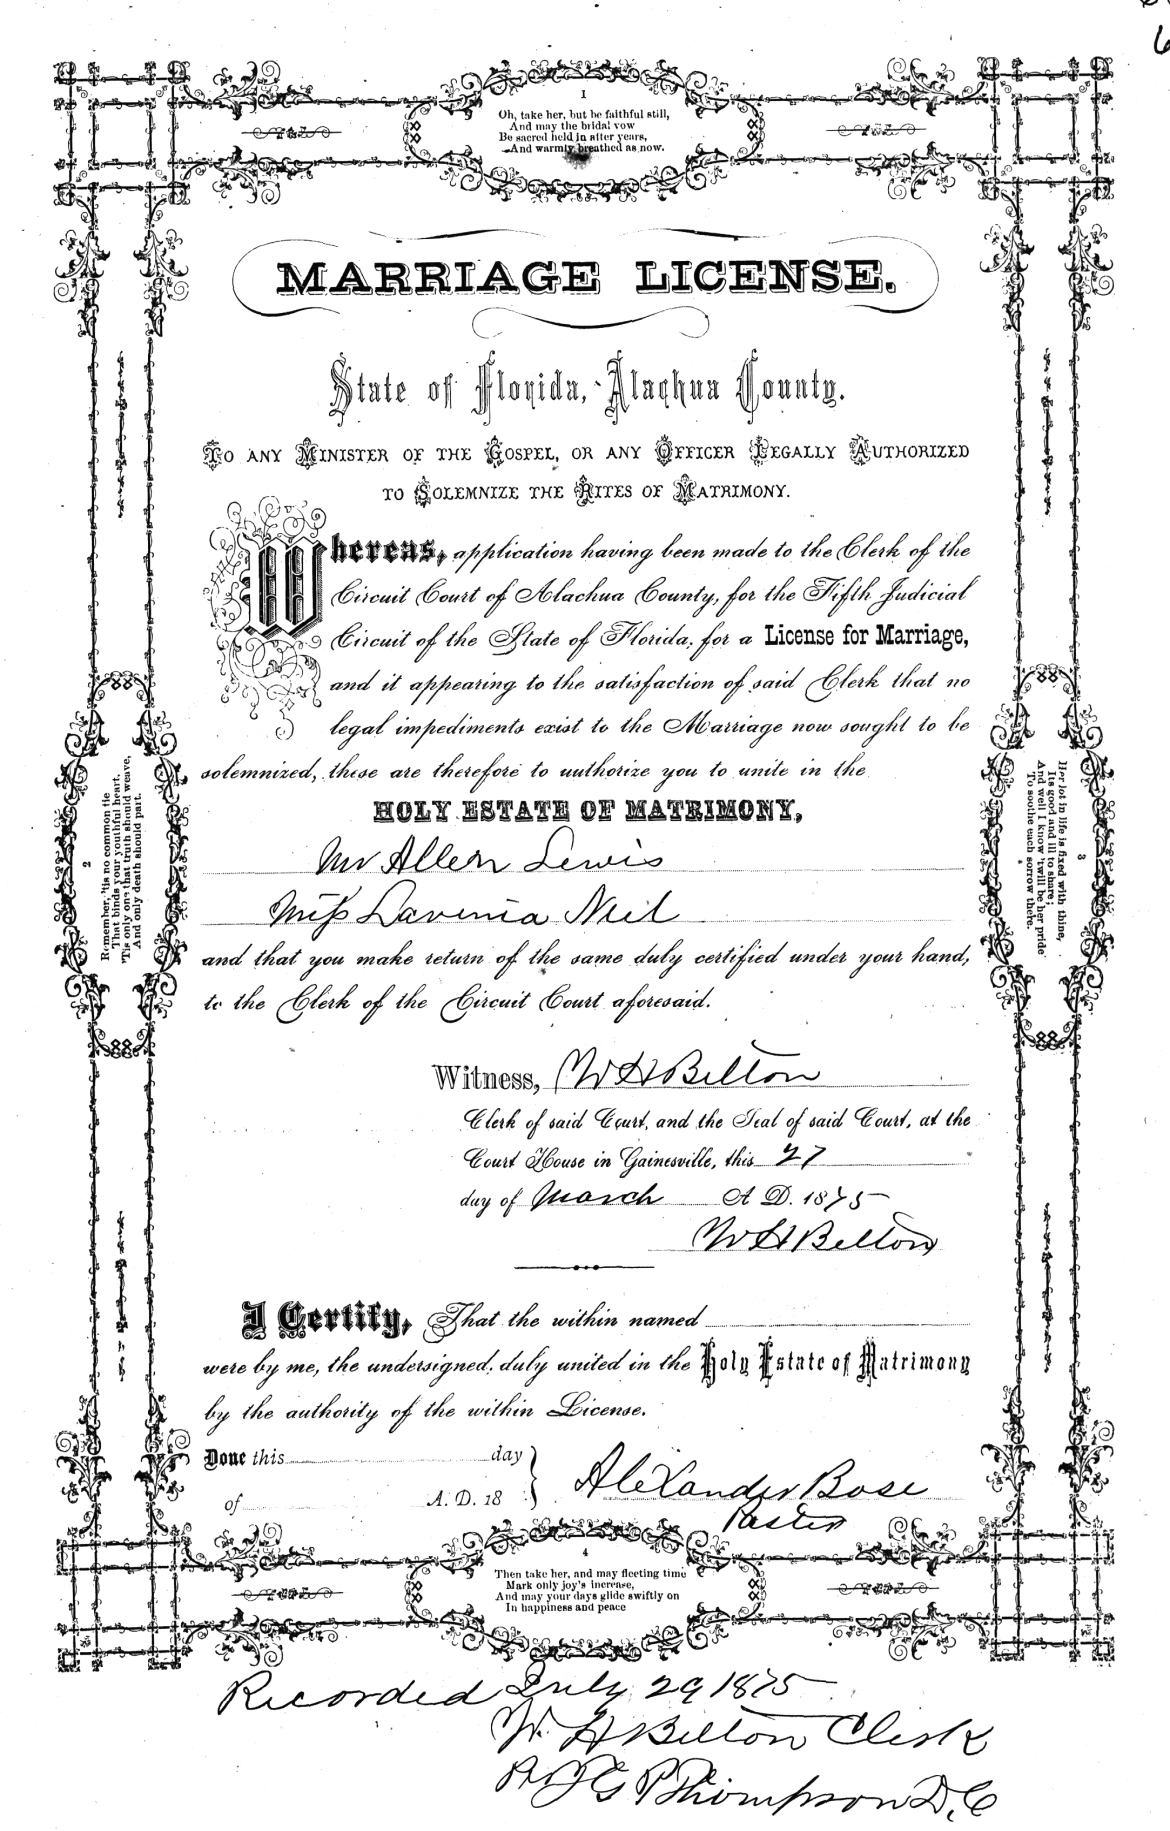 1
Oh, take her, but be faithful still,
And may the bridal vow
Be sacred held in after years,
And warmly breathed as now.
MARRIAGE LICENSE.
State of Florida, - Alachua County.
TO ANY MINISTER OF THE GOSPEL, OR ANY OFFICER LEGALLY AUTHORIZED
TO SOLEMNIZE THE RITES OF MATRIMONY.
Whereas, application having been made to the Clerk of the
Circuit Court of Alachua County, for the Fifth Judicial
Circuit of the State of Florida, for a License for Marriage,
and it appearing to the satisfaction of said Clerk that no
legal impediments exist to the Marriage now sought to be
solemnized, these are therefore to authorize you to unite in the
HOLY ESTATE OF MATRIMONY,
Mr Allen Lewis
Miss Lavinia Neil
and that you make return of the same duly certified under your hand,
to the Clerk of the Circuit Court aforesaid.
2
Remember, 'tis no common tie
That binds your youthful heart,
'Tis only one that truth should weave,
And only death should part.
3
Her lot in life is fixed with thine,
Its good and ill to share;
And well I know 'twill be her pride
To soothe each sorrow there.
Witness, W H Belton
Clerk of said Court, and the Seal of said Court, at the
Court House in Gainesville, this 27
day of March A. D. 1875
W H Belton
I Certify, That the within named
were by me, the undersigned, duly united in the Holy Estate of Matrimony
by the authority of the within License.
Done this day
of A. D. 18
Alexander Bose
Paster
4
Then take her, and may fleeting time
Mark only joy's increase,
And may your days glide swiftly on
In happiness and peace
Recorded July 29 1875
W. H Belton Clerk
P Thompson D.C